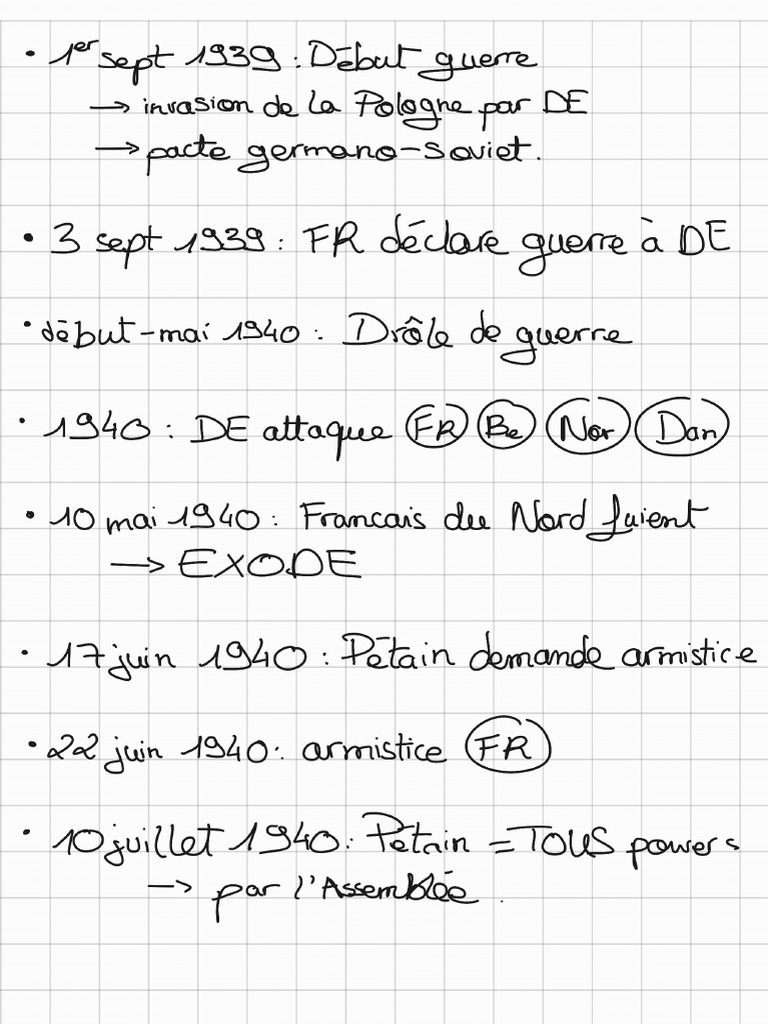 • 1er sept 1939 : Début guerre
→ invasion de la Pologne par DE
→ pacte germano-soviet.
• 3 sept 1939 : FR déclare guerre à DE
• début-mai 1940 : Drôle de guerre
• 1940 : DE attaque FR Be Nor Dan
• 10 mai 1940 : Francais du Nord fuient
→ EXODE
• 17 juin 1940 : Pétain demande armistice
• 22 juin 1940 : armistice FR
• 10 juillet 1940 : Pétain = TOUS powers
→ par l'Assemblée.